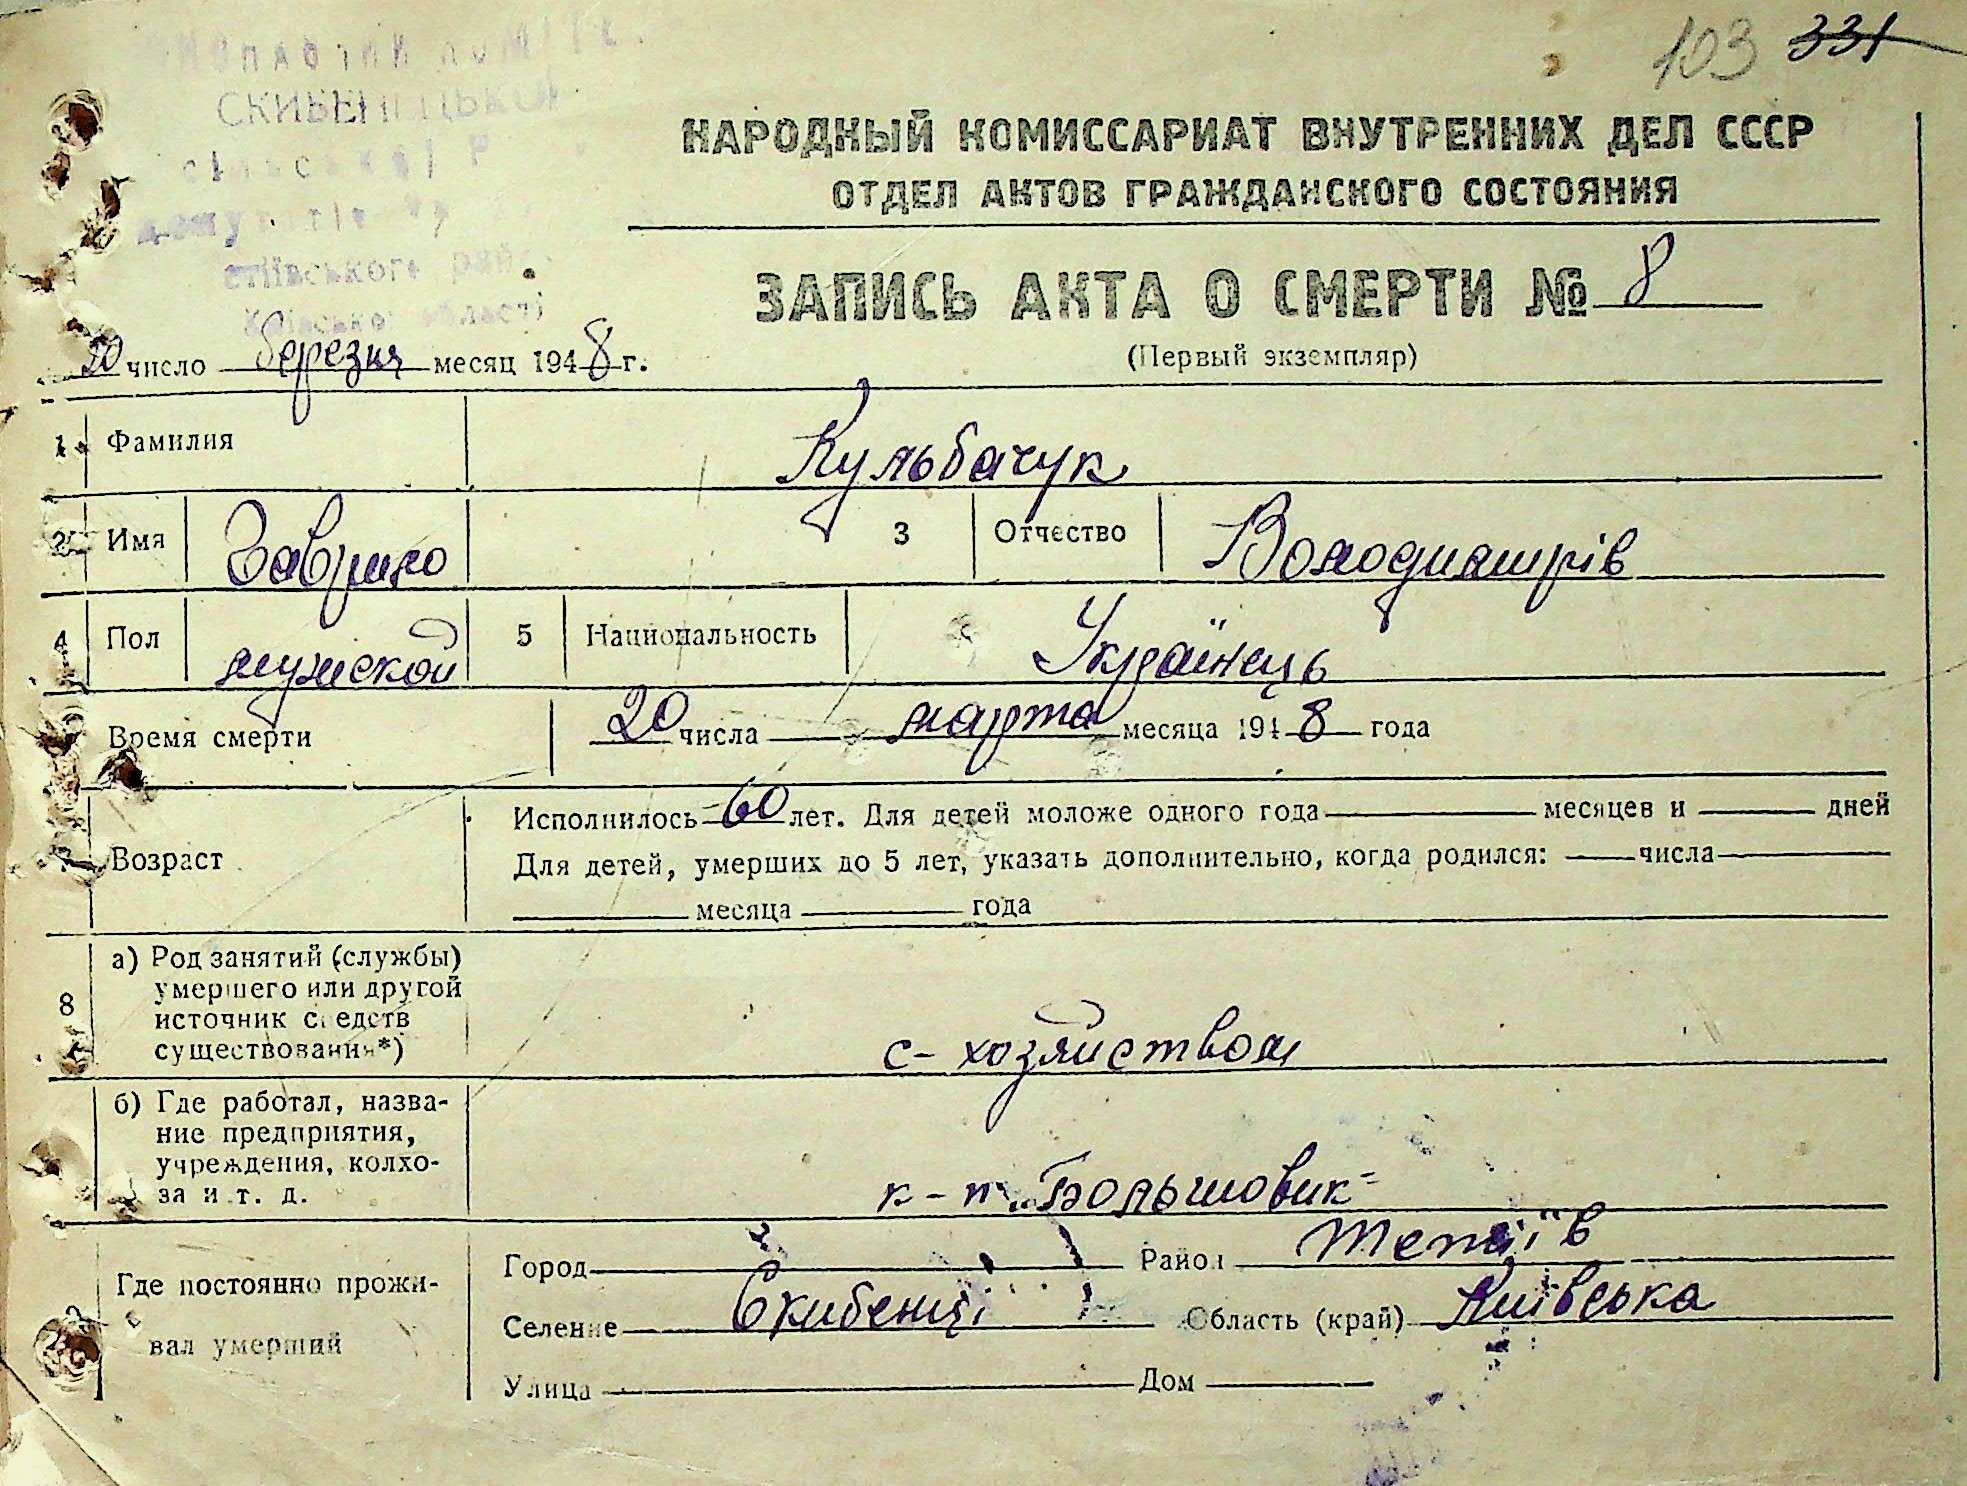 103 331
СКИБЕНЕЦЬКОЇ
НАРОДНЫЙ КОМИССАРИАТ ВНУТРЕННИХ ДЕЛ СССР
ОТДЕЛ АКТОВ ГРАЖДАНСКОГО СОСТОЯНИЯ
області
ЗАПИСЬ АКТА О СМЕРТИ № 8
(Первый экземпляр)
20 число березня месяц 1948 г.
1 Фамилия Кульбачук
2 Имя Гаврило 3 Отчество Володимирів
4 Пол мужской 5 Национальность Українець
Время смерти 20 числа марта месяца 1948 года
Возраст
Исполнилось 60 лет. Для детей моложе одного года месяцев и дней
Для детей, умерших до 5 лет, указать дополнительно, когда родился: числа
месяца года
8 а) Род занятий (службы)
умершего или другой
источник средств
существования*)
с-хозяйством
б) Где работал, назва-
ние предприятия,
учреждения, колхо-
за и т. д.
к-п „Большовик"
Где постоянно прожи-
вал умерший
Город Район Тетіїв
Селение Скибенці Область (край) Київська
Улица Дом